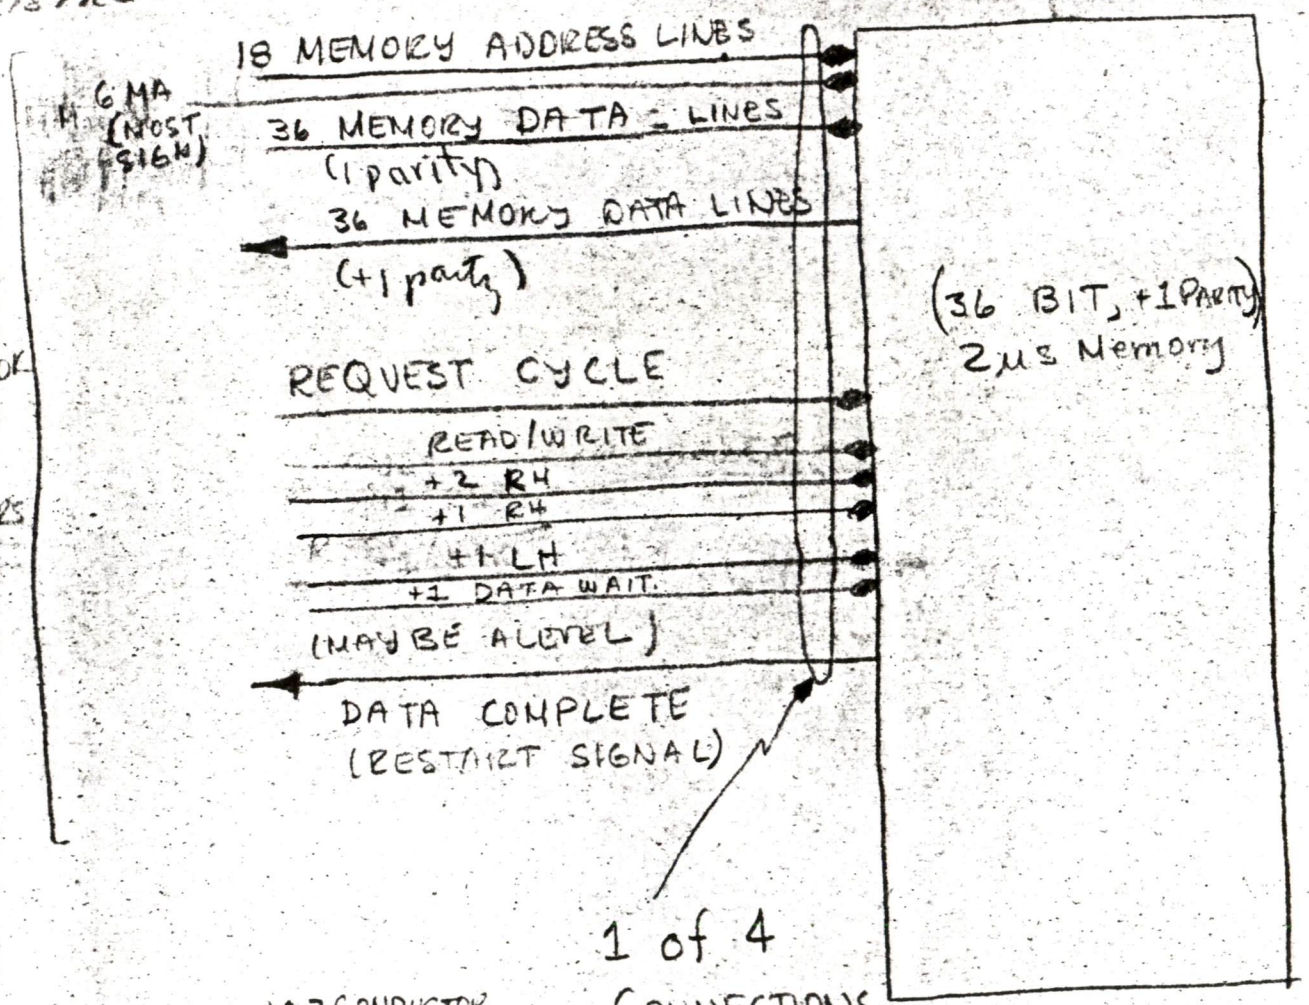 18 MEMORY ADDRESS LINES
6 MA
(MOST
SIGN)
36 MEMORY DATA - LINES
(1 parity)
36 MEMORY DATA LINES
(+1 parity)
(36 BIT, +1 PARITY)
2μs Memory
REQUEST CYCLE
READ/WRITE
+2 RH
+1 RH
+1 LH
+1 DATA WAIT.
(MAY BE A LEVEL)
DATA COMPLETE
(RESTART SIGNAL)
1 of 4
CONDUCTOR CONNECTIONS